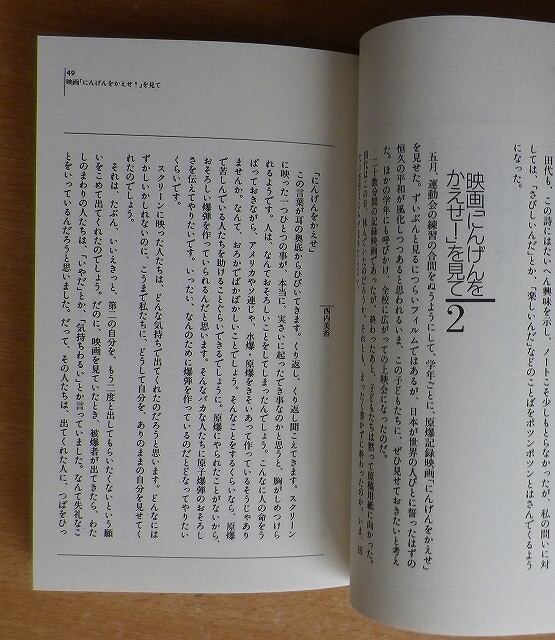 この詩にはたいへん興味を示し、ノートこそ少しもとらなかったが、私の問いに対
しては、「さびしいんだ」とか、「楽しいんだ」などのことばをポツンポツンとはさんでくるよう
になった。
映画「にんげんを
かえせ！」を見て
2
五月、運動会の練習の合間をぬうようにして、学年ごとに、原爆記録映画「にんげんをかえせ」
を見せた。ずいぶんと見るにつらいフィルムではあるが、日本が世界の人びとに誓ったはずの
恒久の平和が風化しつつあると思われるいま、この子どもたちに、ぜひ見せておきたいと考え
た。ほかの学年にも呼びかけ、全校に広がっての上映会になったのだ。
二十数分間の記録映画であったが、終わったあと、子どもたちは黙って原稿用紙に向かった。
49
映画「にんげんをかえせ！」を見て
西内美香
「にんげんをかえせ」
この言葉が耳の奥底からひびいてきます。くり返し、くり返し聞こえてきます。スクリーン
に映った一つひとつの事が、本当に、実さいに起ったでき事なのかと思うと、胸がしめつけら
れるようです。人は、なんておそろしいことをしてしまったんでしょう。こんなに人の命をう
ばっておきながら、アメリカやソ連じゃ、水爆・原爆をきそいあって作っているそうじゃあり
ませんか。なんて、おろかでばかばかしいことでしょう。そんなことをするくらいなら、原爆
で苦しんでいる人たちを助けることぐらいできるでしょうに。原爆にやられたことがないから、
おそろしい爆弾を作っていられるんだと思います。そんなバカな人たちに原子爆弾のおそろし
さを伝えてやりたいです。いったい、なんのために爆弾を作っているのだとどなってやりたい
くらいです。
スクリーンに映った人たちは、どんな気持ちで出てくれたのだろうと思います。どんなには
ずかしいかしれないのに、こうまで私たちに、どうして自分を、ありのままの自分を見せてく
れたのでしょう。
それは、たぶん、いいえきっと、第二の自分を、もう二度と出してもらいたくないという願
いをこめて出てくれたのでしょう。だのに、映画を見ていたとき、被爆者が出てきたら、わた
しのまわりの人たちは、「いやだ」とか、「気持ちわるい」とか言っていました。なんて失礼なこ
とをいっているんだろうと思いました。だって、その人たちは、出てくれた人に、つばをひっ